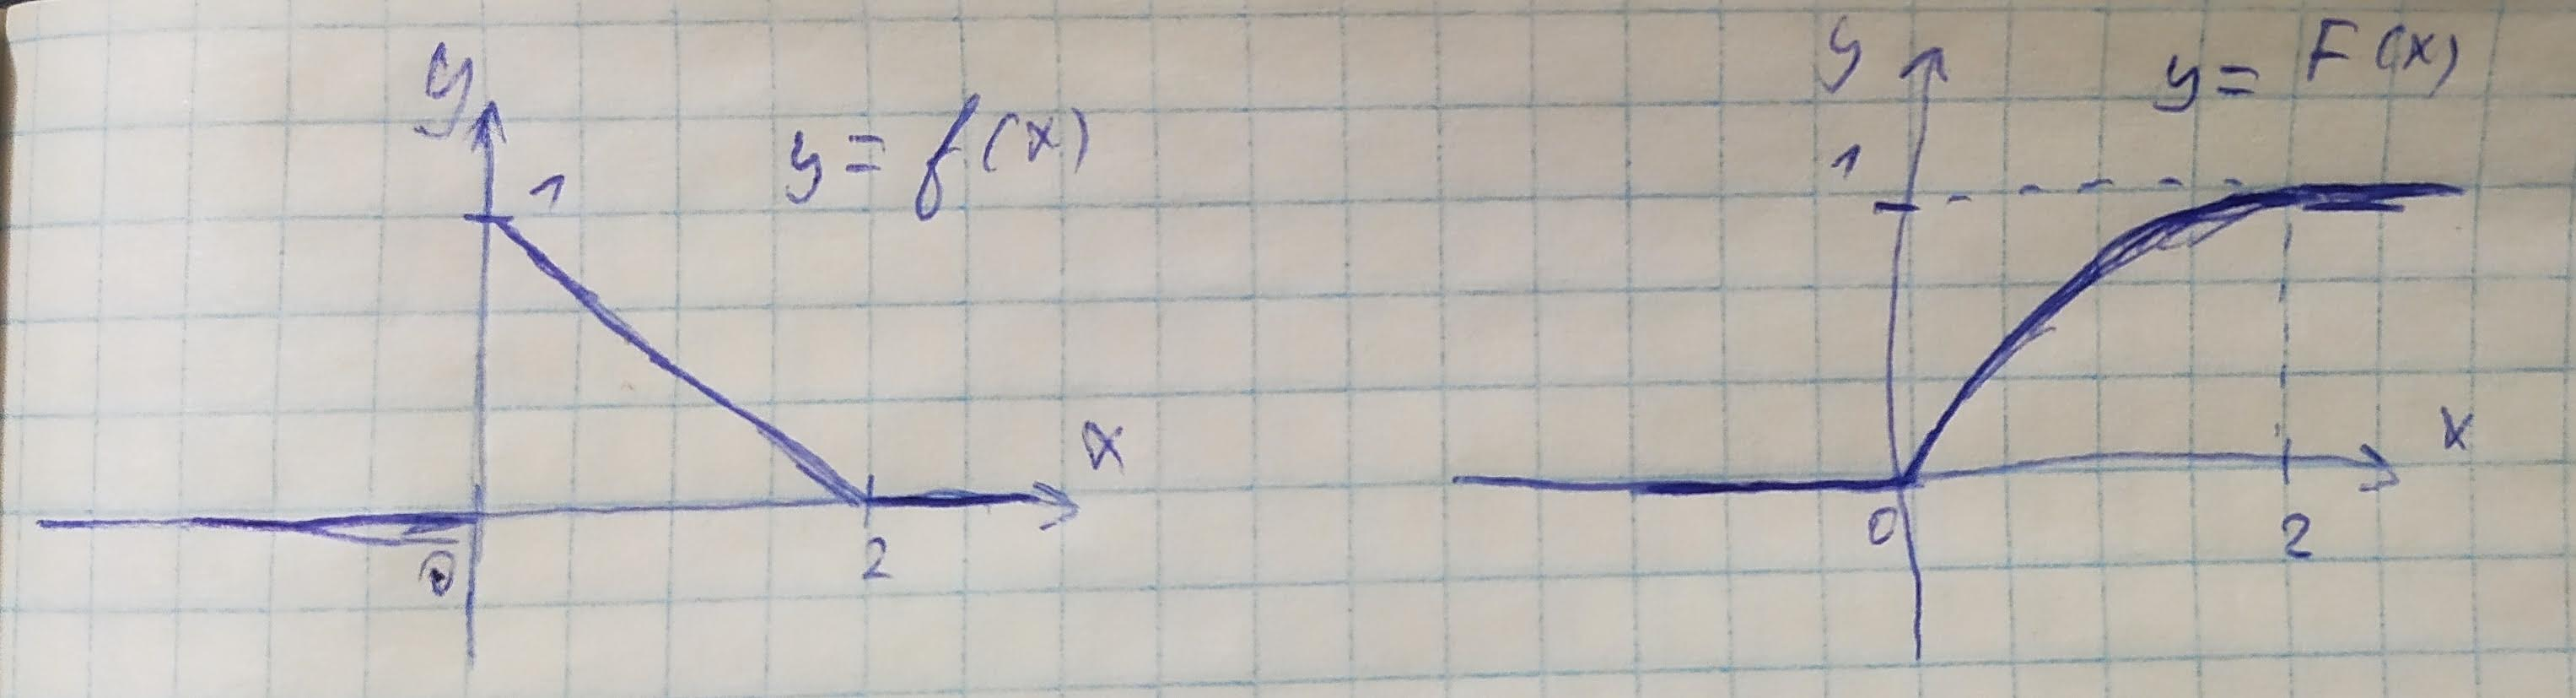 y
1
y = f(x)
x
0
2
y
1
y = F(x)
x
0
2